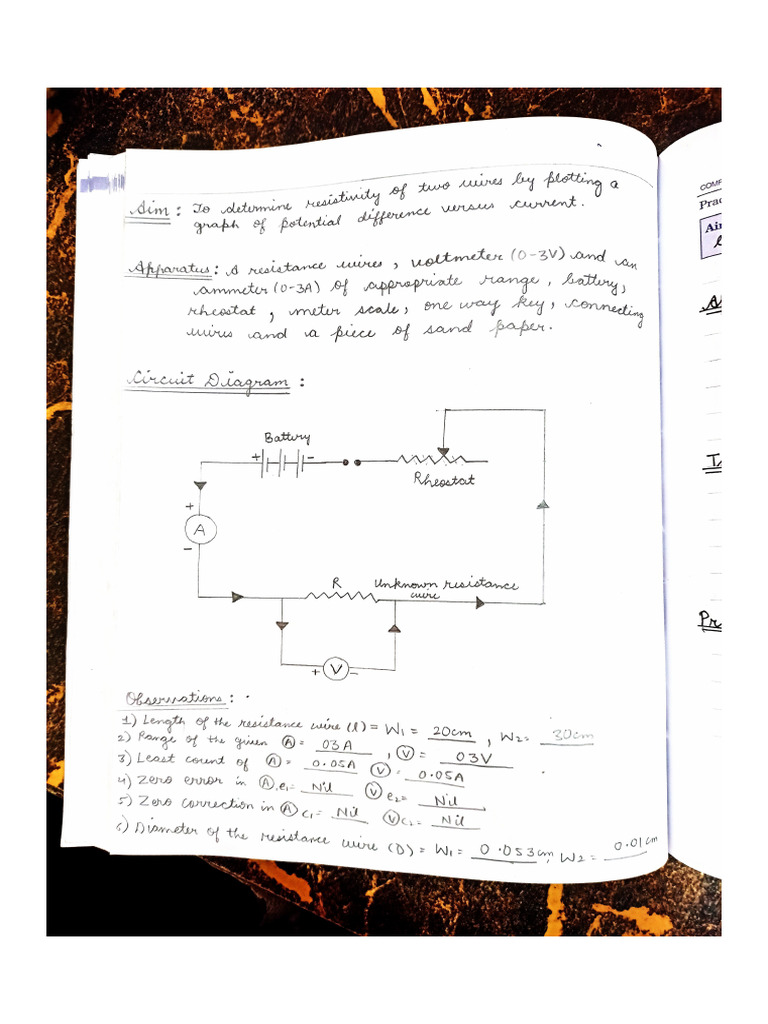 Aim : To determine resistivity of two wires by plotting a
graph of potential difference versus current.
Apparatus : A resistance wires, voltmeter (0-3V) and an
ammeter (0-3A) of appropriate range, battery,
rheostat, meter scale, one way key, connecting
wires and a piece of sand paper.
Circuit Diagram :
Battery
+ -
Rheostat
+
A
-
R Unknown resistance
wire
+ V -
Observations :
1) Length of the resistance wire (l) = W1 = 20cm, W2 = 30cm
2) Range of the given Ⓐ = 03A, Ⓥ = 03V
3) Least count of Ⓐ = 0.05A Ⓥ = 0.05A
4) Zero error in Ⓐ, e1 = Nil Ⓥ e2 = Nil
5) Zero correction in Ⓐ C1 = Nil Ⓥ C2 = Nil
6) Diameter of the resistance wire (D) = W1 = 0.053cm, W2 = 0.01cm